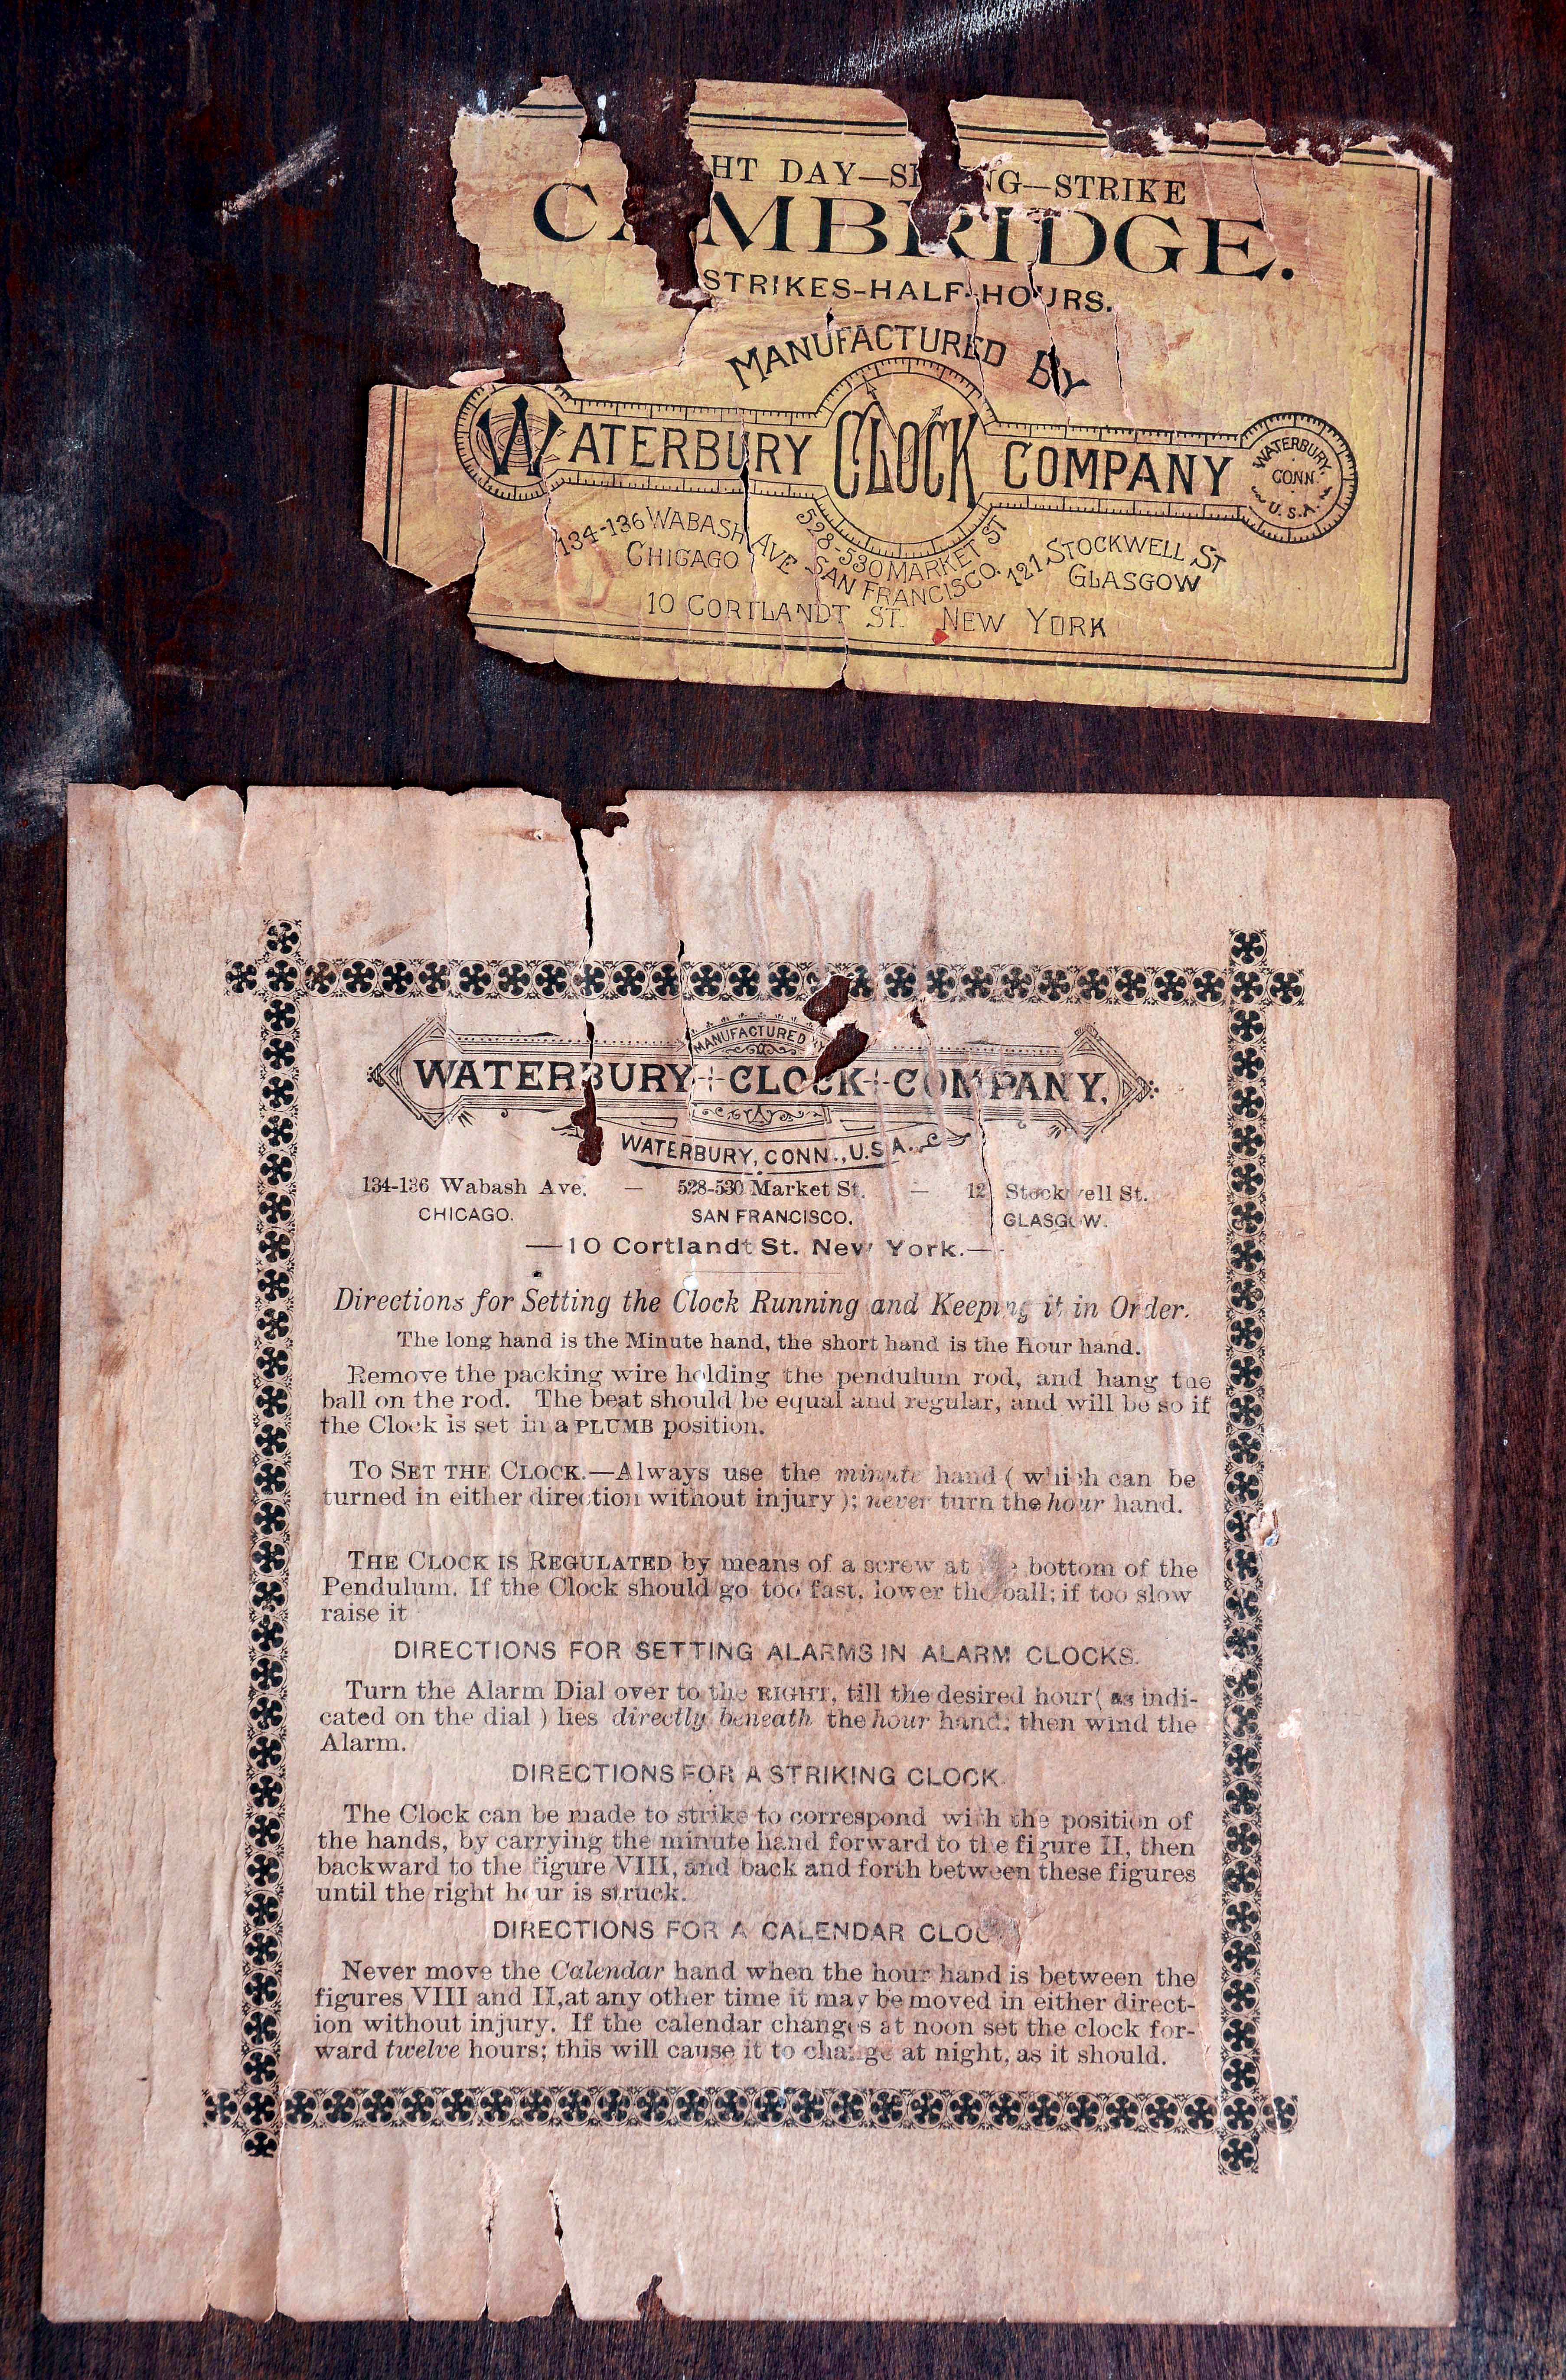 HT DAY—S NG—STRIKE
CAMBRIDGE.
STRIKES-HALF-HOURS.
MANUFACTURED BY
WATERBURY CLOCK COMPANY
WATERBURY, CONN. U.S.A.
134-136 WABASH AVE 528-530 MARKET ST 121 STOCKWELL ST
CHICAGO SAN FRANCISCO. GLASGOW
10 CORTLANDT ST. NEW YORK
MANUFACTURED BY
WATERBURY CLOCK COMPANY.
WATERBURY, CONN., U.S.A.
134-136 Wabash Ave. — 528-530 Market St. — 12 Stockwell St.
CHICAGO. SAN FRANCISCO. GLASGOW.
—10 Cortlandt St. New York.—
Directions for Setting the Clock Running and Keeping it in Order.
The long hand is the Minute hand, the short hand is the Hour hand.
Remove the packing wire holding the pendulum rod, and hang the
ball on the rod. The beat should be equal and regular, and will be so if
the Clock is set in a PLUMB position.
TO SET THE CLOCK.—Always use the minute hand ( which can be
turned in either direction without injury ); never turn the hour hand.
THE CLOCK IS REGULATED by means of a screw at the bottom of the
Pendulum. If the Clock should go too fast, lower the ball; if too slow
raise it
DIRECTIONS FOR SETTING ALARMS IN ALARM CLOCKS.
Turn the Alarm Dial over to the RIGHT, till the desired hour ( as indi-
cated on the dial ) lies directly beneath the hour hand; then wind the
Alarm.
DIRECTIONS FOR A STRIKING CLOCK.
The Clock can be made to strike to correspond with the position of
the hands, by carrying the minute hand forward to the figure II, then
backward to the figure VIII, and back and forth between these figures
until the right hour is struck.
DIRECTIONS FOR A CALENDAR CLOC
Never move the Calendar hand when the hour hand is between the
figures VIII and II, at any other time it may be moved in either direct-
ion without injury. If the calendar changes at noon set the clock for-
ward twelve hours; this will cause it to change at night, as it should.